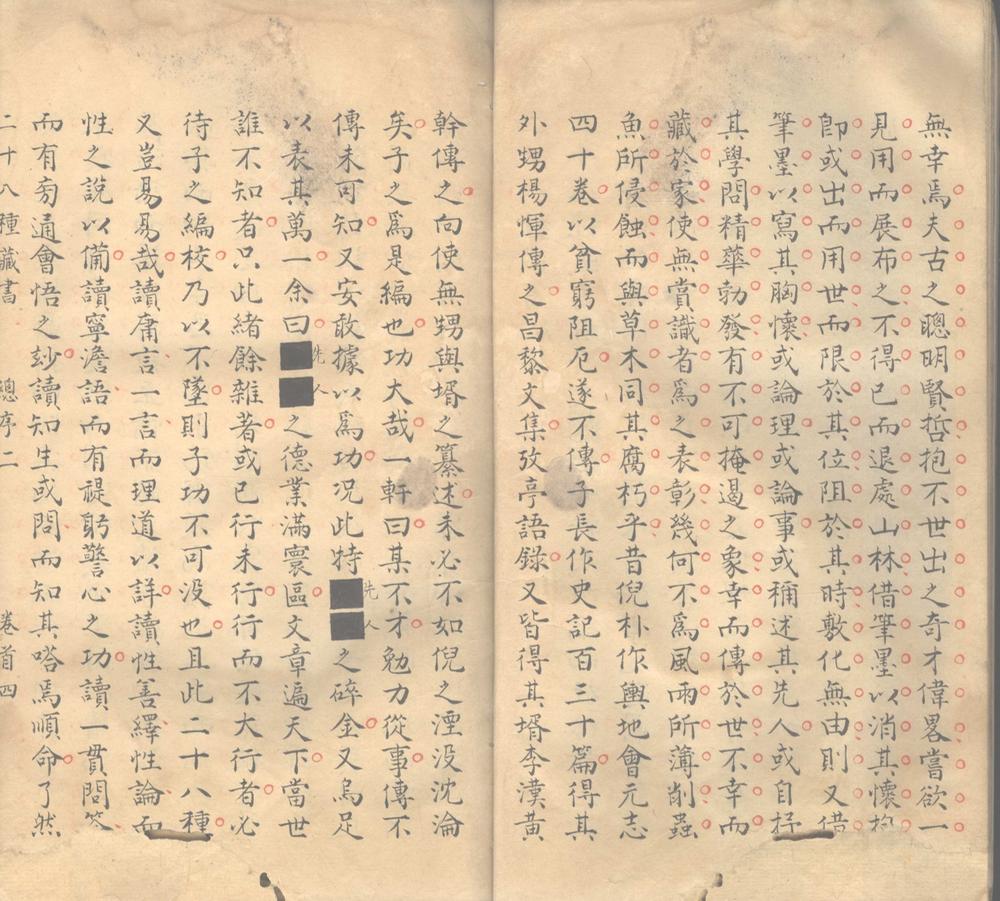 無幸焉夫古之聰明賢哲抱不世出之奇才偉畧嘗欲一
見用而展布之不得已而退處山林借筆墨以消其懷抱
卽或出而用世而限於其位阻於其時敷化無由則又借
筆墨以寫其胸懷或論理或論事或稱述其先人或自抒
其學問精華勃發有不可掩遏之象幸而傳於世不幸而
藏於家使無賞識者爲之表彰幾何不爲風雨所薄削蟲
魚所侵蝕而與草木同其腐朽乎昔倪朴作輿地會元志
四十卷以貧窮阻厄遂不傳子長作史記百三十篇得其
外甥楊惲傳之昌黎文集攷亭語録又皆得其壻李漢黃
幹傳之向使無甥與壻之纂述未必不如倪之湮没沈淪
矣子之爲是編也功大哉一軒曰某不才勉力從事傳不
傳未可知又安敢據以爲功況此特先人之碎金又烏足
以表其萬一余曰先人之德業滿寰區文章遍天下當世
誰不知者只此緒餘雜著或已行未行行而不大行者必
待子之編校乃以不墜則子功不可没也且此二十八種
又豈易易哉讀庸言一言而理道以詳讀性善繹性論而
性之說以備讀寧澹語而有禔躬警心之功讀一貫問答
而有旁通會悟之玅讀知生或問而知其嗒焉順命了然
二十八種藏書 總序二 卷首四